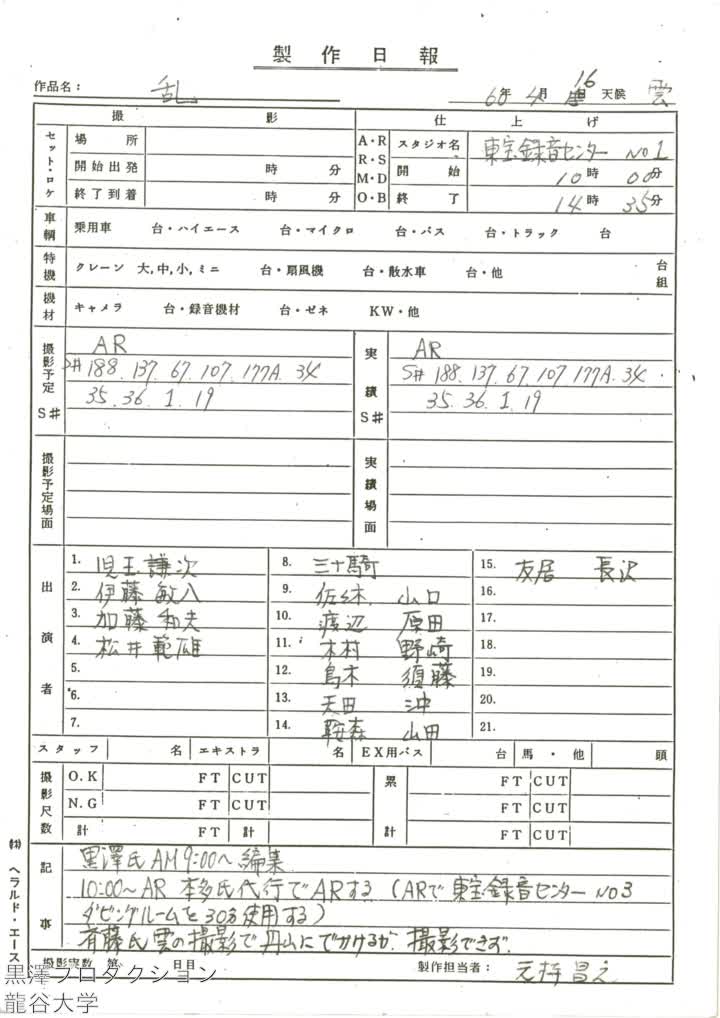 製作日報
作品名： 乱 60年 4月 16日 天候 雲
撮影 仕上げ
セット・ロケ 場所 A・R スタジオ名 東宝録音センター NO1
開始出発 時 分 R・S M・D 開始 10時 00分
終了到着 時 分 O・B 終了 14時 35分
車輌 乗用車 台・ハイエース 台・マイクロ 台・バス 台・トラック 台
特機 クレーン 大,中,小,ミニ 台・扇風機 台・散水車 台・他 台組
機材 キャメラ 台・録音機材 台・ゼネ KW・他
撮影予定 S# AR 実績 S# AR
S# 188. 137. 67. 107. 177A. 34 S# 188. 137. 67. 107 177A. 34.
35. 36. 1. 19 35. 36. 1. 19
撮影予定場面 実績場面
出演者
1. 児玉謙次 8. 三十騎 15. 友居 長沢
2. 伊藤敏八 9. 佐々木 山口 16.
3. 加藤和夫 10. 渡辺 原田 17.
4. 松井範雄 11. 木村 野崎 18.
5. 12. 鳥木 須藤 19.
6. 13. 天田 沖 20.
7. 14. 鞍森 山田 21.
スタッフ 名 エキストラ 名 EX用バス 台 馬・他 頭
撮影尺数 O.K FT CUT 累計 FT CUT
N.G FT CUT FT CUT
計 FT 計 FT CUT
記事 黒澤氏 AM9:00〜編集
10:00〜AR 本多氏代行でARする（ARで東宝録音センター NO3
ダビングルームを30分使用する）
斉藤氏雲の撮影で丹山にでかけるが、撮影できず.
撮影実数 第 日目 製作担当者：
㈱ ヘラルド・エース
黒澤プロダクション
龍谷大学